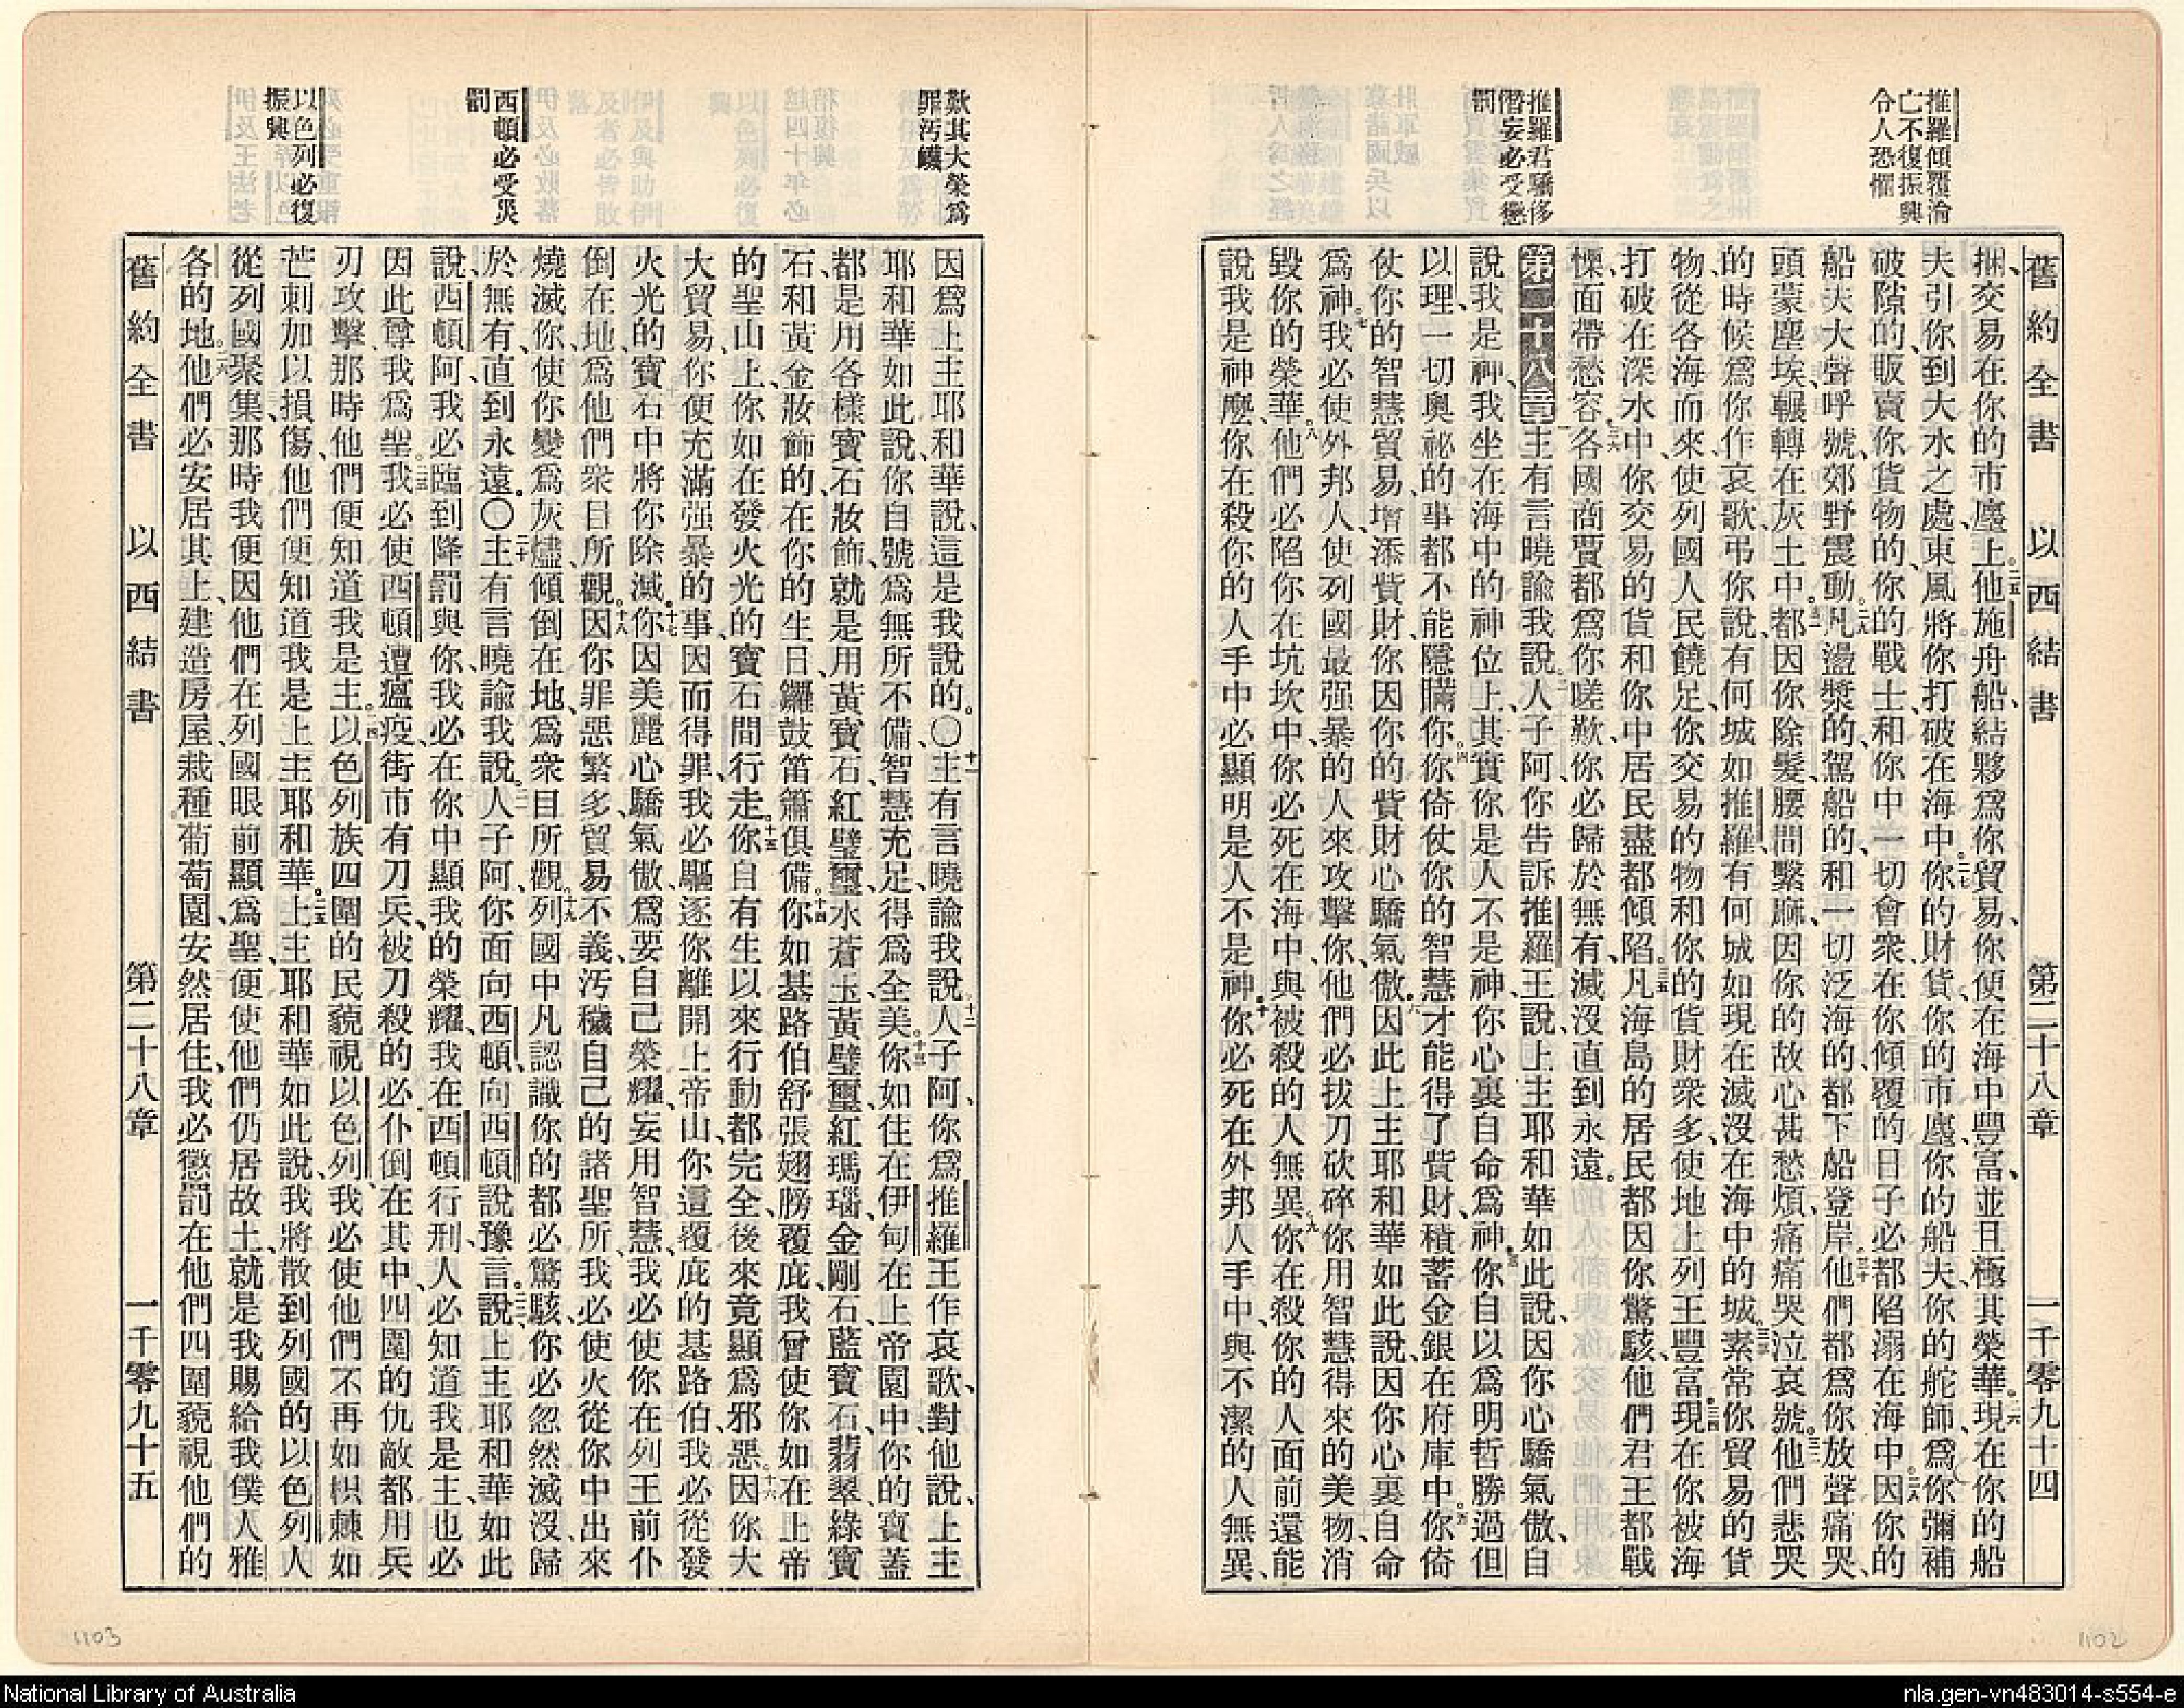 推羅傾覆淪
亡不復振興
令人恐懼
推羅君驕侈
僭妄必受懲
罰
舊約全書 以西結書 第二十八章 一千零九十四
捆、交易在你的市廛上。二五他施舟船、結夥爲你貿易、你便在海中豐富、並且極其榮華。二六現在你的船
夫引你到大水之處、東風將你打破在海中。二七你的財貨、你的市廛、你的船夫、你的舵師、爲你彌補
破隙的、販賣你貨物的、你的戰士、和你中一切會衆、在你傾覆的日子、必都陷溺在海中。二八因你的
船夫大聲呼號、郊野震動。二九凡盪槳的、駕船的、和一切泛海的、都下船登岸。三十他們都爲你放聲痛哭、
頭蒙塵埃、輾轉在灰土中。三一都因你除髮、腰間繫麻、因你的故心甚愁煩、痛痛哭泣哀號。三二他們悲哭
的時候、爲你作哀歌、弔你說、有何城如推羅、有何城如現在滅沒在海中的城。三三素常你貿易的貨
物、從各海而來、使列國人民饒足、你交易的物、和你的貨財衆多、使地上列王豐富。三四現在你被海
打破在深水中、你交易的貨、和你中居民、盡都傾陷。三五凡海島的居民、都因你驚駭、他們君王都戰
慄、面帶愁容。三六各國商賈都爲你嗟歎、你必歸於無有、滅沒直到永遠。
第二十八章一主有言曉諭我說、二人子阿、你告訴推羅王說、上主耶和華如此說、因你心驕氣傲、自
說我是神、我坐在海中的神位上、其實你是人不是神、你心裏自命爲神。三你自以爲明哲勝過但
以理、一切奧祕的事都不能隱瞞你。四你倚仗你的智慧才能得了貲財、積蓄金銀在府庫中。五你倚
仗你的智慧貿易、增添貲財、你因你的貲財心驕氣傲。六因此上主耶和華如此說、因你心裏自命
爲神。七我必使外邦人、使列國最强暴的人來攻擊你、他們必拔刀砍碎你用智慧得來的美物、消
毀你的榮華。八他們必陷你在坑坎中、你必死在海中、與被殺的人無異。九你在殺你的人面前、還能
說我是神麽、你在殺你的人手中、必顯明是人不是神。十你必死在外邦人手中、與不潔的人無異、
歎其大榮爲
罪汚衊
西頓必受災
罰
以色列必復
振興
因爲上主耶和華說、這是我說的。〇十一主有言曉諭我說、十二人子阿、你爲推羅王作哀歌、對他說、上主
耶和華如此說、你自號爲無所不備、智慧充足、得爲全美。十三你如住在伊甸、在上帝園中、你的寶蓋
都是用各樣寶石妝飾、就是用黃寶石、紅璧璽、水蒼玉、黃璧璽、紅瑪瑙、金剛石、藍寶石、翡翠、綠寶
石、和黃金妝飾的、在你的生日、鑼鼓笛簫俱備。十四你如基路伯舒張翅膀覆庇、我曾使你如在上帝
的聖山上、你如在發火光的寶石間行走。十五你自有生以來、行動都完全、後來竟顯爲邪惡。十六因你大
大貿易、你便充滿强暴的事、因而得罪、我必驅逐你離開上帝山、你這覆庇的基路伯、我必從發
火光的寶石中將你除滅。十七你因美麗心驕氣傲、爲要自己榮耀、妄用智慧、我必使你在列王前仆
倒在地、爲他們衆目所觀。十八因你罪惡繁多、貿易不義、汚穢自己的諸聖所、我必使火從你中出來
燒滅你、使你變爲灰燼、傾倒在地、爲衆目所觀。十九列國中凡認識你的、都必驚駭、你必忽然滅沒、歸
於無有、直到永遠。〇二十主有言曉諭我說、二一人子阿、你面向西頓、向西頓說豫言。二二說上主耶和華如此
說、西頓阿、我必臨到降罰與你、我必在你中顯我的榮耀、我在西頓行刑、人必知道我是主、也必
因此尊我爲聖。二三我必使西頓遭瘟疫、街市有刀兵、被刀殺的必仆倒在其中、四圍的仇敵都用兵
刃攻擊、那時他們便知道我是主。二四以色列族四圍的民藐視以色列、我必使他們不再如枳棘、如
芒刺、加以損傷、他們便知道我是上主耶和華。二五上主耶和華如此說、我將散到列國的以色列人
從列國聚集、那時我便因他們在列國眼前顯爲聖、便使他們仍居故土、就是我賜給我僕人雅
各的地。二六他們必安居其上、建造房屋、栽種葡萄園、安然居住、我必懲罰在他們四圍藐視他們的
舊約全書 以西結書 第二十八章 一千零九十五
1103
1102
National Library of Australia
nla.gen-vn483014-s554-e